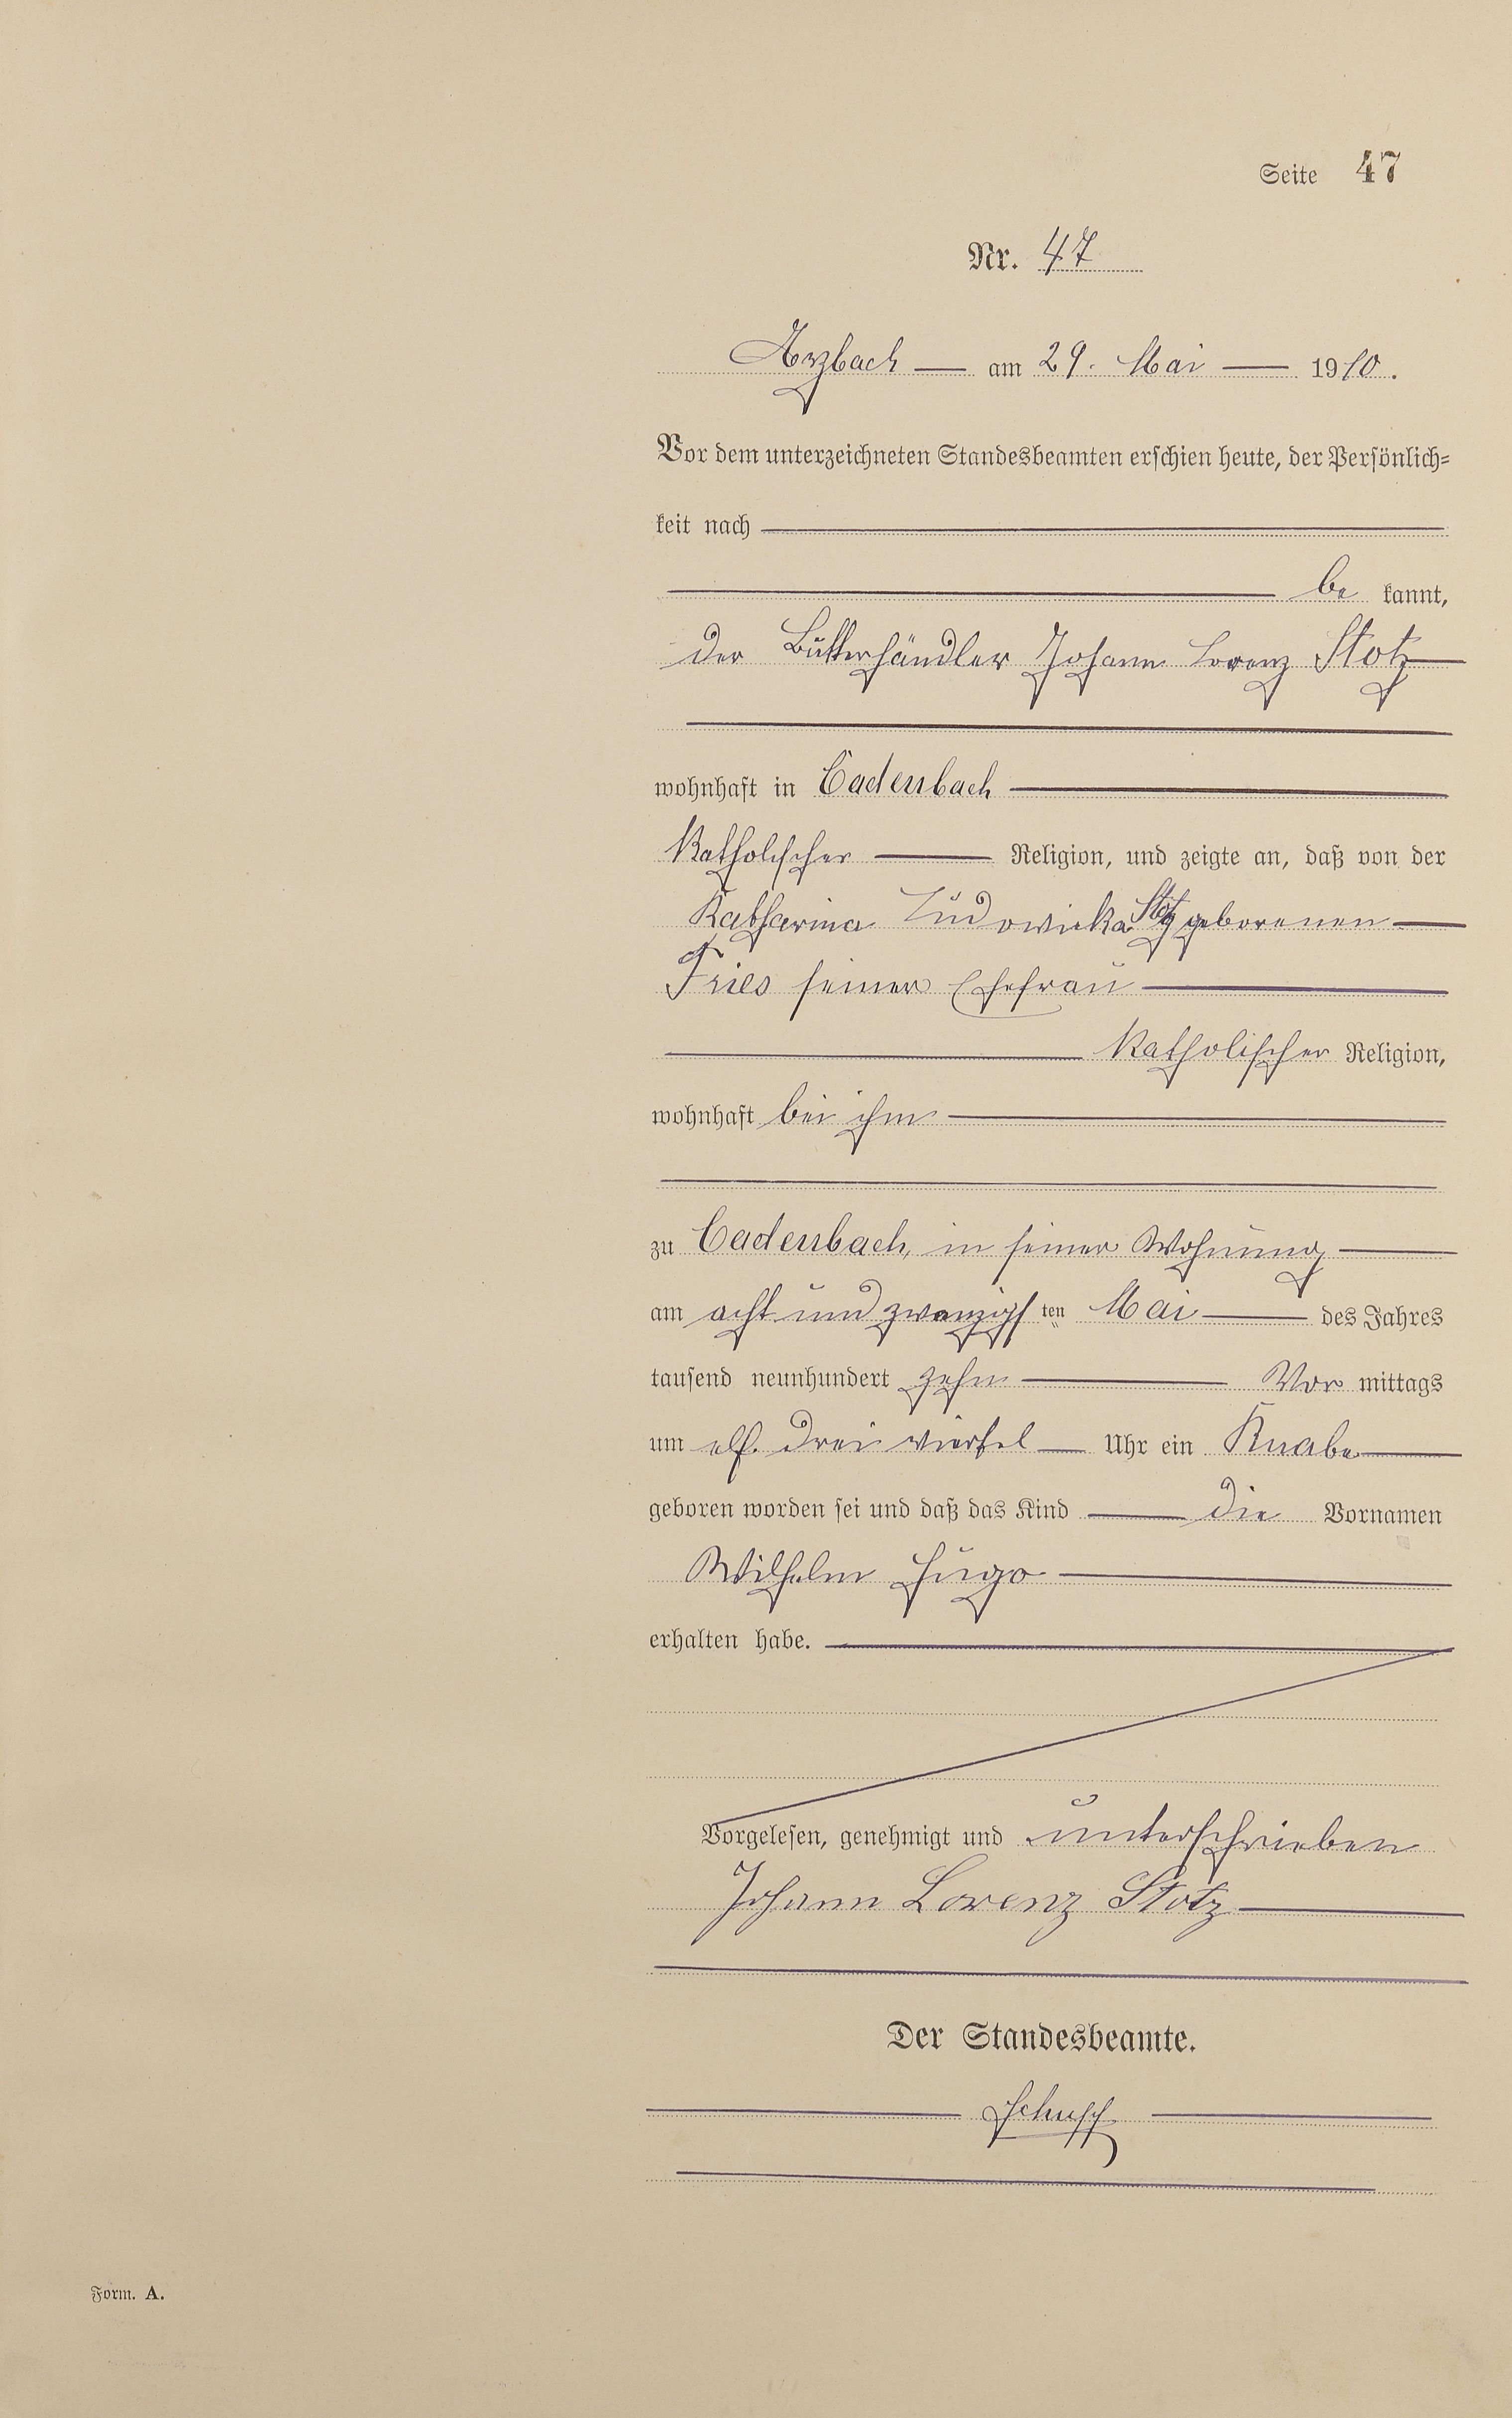 Seite 47
Nr. 47
Arzbach — am 29. Mai — 1910.
Vor dem unterzeichneten Standesbeamten erschien heute, der Persönlich=
keit nach
be kannt,
der Butterhändler Johann Lorenz Stotz
wohnhaft in Cadenbach
katholischer Religion, und zeigte an, daß von der
Katharina Ludowicka Stotz geborenen
Fries seiner Ehefrau
katholischer Religion,
wohnhaft bei ihm
zu Cadenbach, in seiner Wohnung
am acht und zwanzigsten Mai des Jahres
tausend neunhundert zehn Vor mittags
um elf drei viertel Uhr ein Knabe
geboren worden sei und daß das Kind die Vornamen
Wilhelm Hugo
erhalten habe.
Vorgelesen, genehmigt und unterschrieben
Johann Lorenz Stotz
Der Standesbeamte.
Form. A.